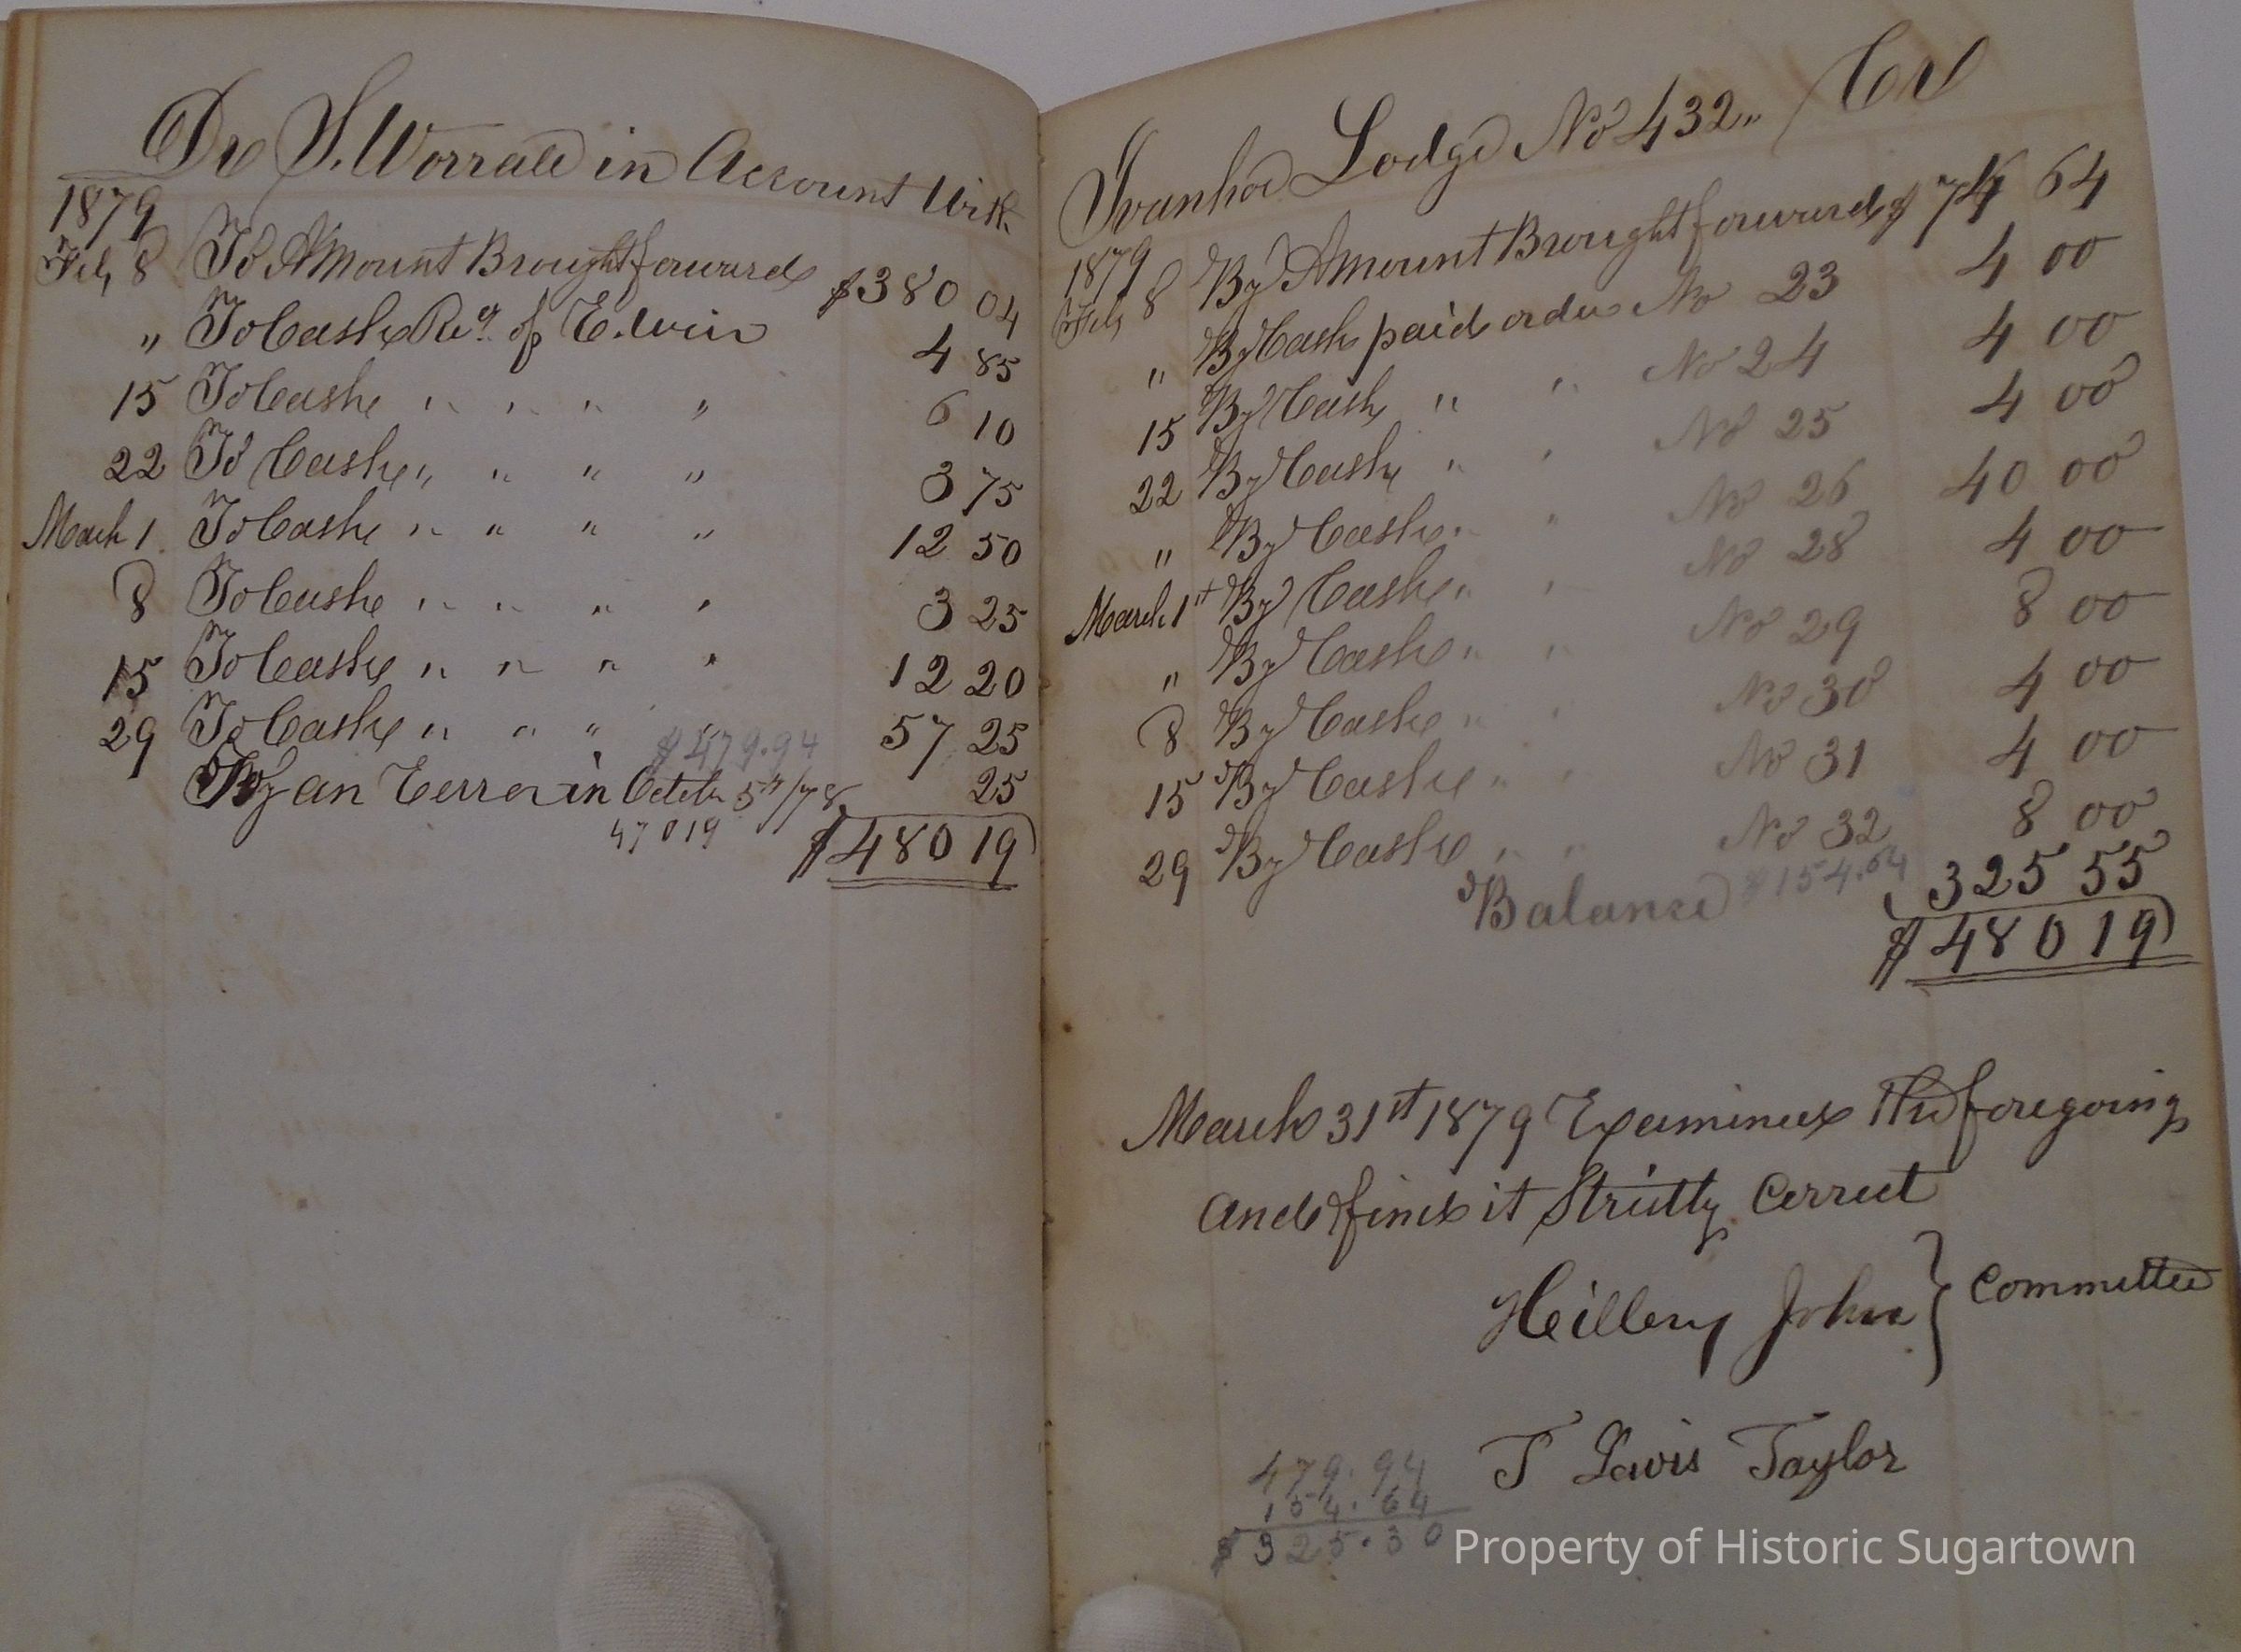 Dr S. Worrall in Account With
1879
Feb 8 To Amount Brought forward $380 04
" To Cash Recd. of E. Lewis 4 85
15 To Cash " " " " 6 10
22 To Cash " " " " 3 75
March 1. To Cash " " " " 12 50
8 To Cash " " " " 3 25
15 To Cash " " " " 12 20
29 To Cash " " " " 57 25
$479.94
By an Error in October 5th/78 25
47019 $480 19
Ivanhoe Lodge No 432" Cr
1879
Feb 8 By Amount Brought forward $ 74 64
" By Cash paid order No 23 4 00
15 By Cash " " No 24 4 00
22 By Cash " " No 25 4 00
" By Cash " " No 26 40 00
March 1st By Cash " " No 28 4 00
" By Cash " " No 29 8 00
8 By Cash " " No 30 4 00
15 By Cash " " No 31 4 00
29 By Cash " " No 32 8 00
Balance $154.64 325 55
$480 19
March 31st 1879 Examined The foregoing
and find it Strictly Correct
Hillery John } Committee
T Lewis Taylor
479.94
154.64
$325.30
Property of Historic Sugartown